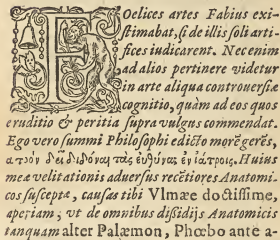 FOelices artes Fabius exi-
stimabat, si de illis soli arti-
fices iudicarent. Nec enim
ad alios pertinere videtur
in arte aliqua controuersiæ
cognitio, quàm ad eos quos
eruditio & peritia supra vulgus commendat.
Ego vero summi Philosophi edicto morē gerēs,
ἰατρὸν δεῖ διδόναι τὰς εὐθύνας ἐν ἰατροῖς. Huius
meæ velitationis aduersus recētiores Anatomi-
cos susceptæ, causas tibi Vlmæe doctissime,
aperiam, vt de omnibus dissidijs Anatomicis
tanquam alter Palæmon, Phœbo ante a-